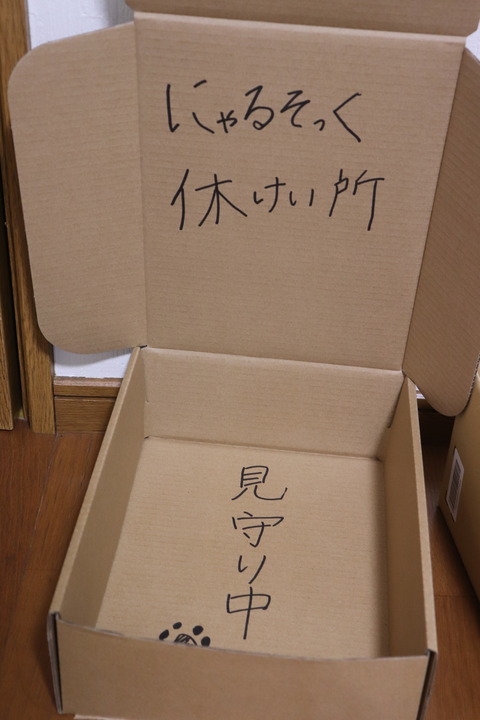 にゃるそっく
休けい所
見守り中